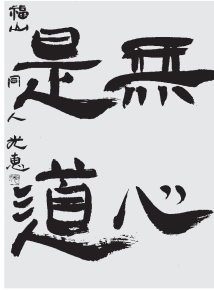 無心
是道
福山 同人 光惠